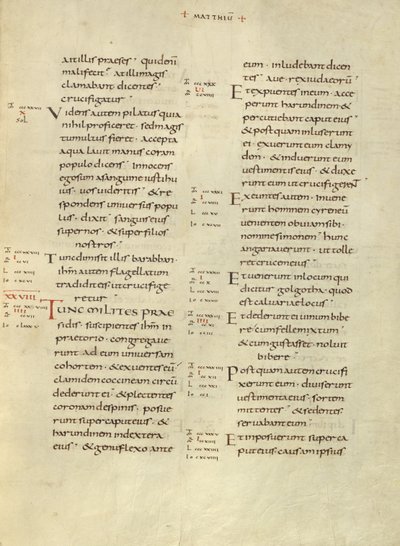 + MATTHEŪ +
ait illis praeses · quid enī
malifecit · at illi magis
clamabant dicentes ·
crucifigatur ·
Videns autem pilatus quia
nihil proficeret · sed magis
tumultus fieret · accepta
aqua lauit manus coram
populo dicens · innocens
ego sum a sanguine iusti hu
ius · uos uideritis · & re
spondens uniuersus popu
lus · dixit · sanguis eius
super nos · & super filios
nostros ·
Tunc dimisit illis barabban ·
ihm autem flagellatum
tradidit eis ut crucifige
retur
XXVIII
Tunc milites prae
sidis · suscipientes ihm in
praetorio · congregaue
runt ad eum uniuersam
cohortem · & exuentes eū
clamidem coccineam circū
dederunt ei · & plectentes
coronam de spinis · posue
runt super caput eius · &
harundinem in dextera
eius · & genu flexo ante
eum · inludebant dicen
tes · aue · rex iudaeorū
Et expuentes in eum · acce
perunt harundinem · &
percutiebant caput eius ·
& postquam inluserunt
ei · exuerunt eum clamy
dem · & induerunt eum
uestimentis eius · & duxe
runt eum ut crucifigerent
Exeuntes autem · inuene
runt hominem cyreneū
uenientem obuiam sibi ·
nomine simonem · hunc
angariauerunt · ut tolle
ret crucem eius
Et uenerunt in locum qui
dicitur golgotha · quod
est caluariae locus ·
Et dederunt ei uinum bibe
re · cum felle mixtum ·
& cum gustasset · noluit
bibere ·
Postquam autem crucifi
xerunt eum · diuiserunt
uestimenta eius · sortem
mittentes · & sedentes
seruabant eum ·
Et imposuerunt super ca
put eius · causam ipsius